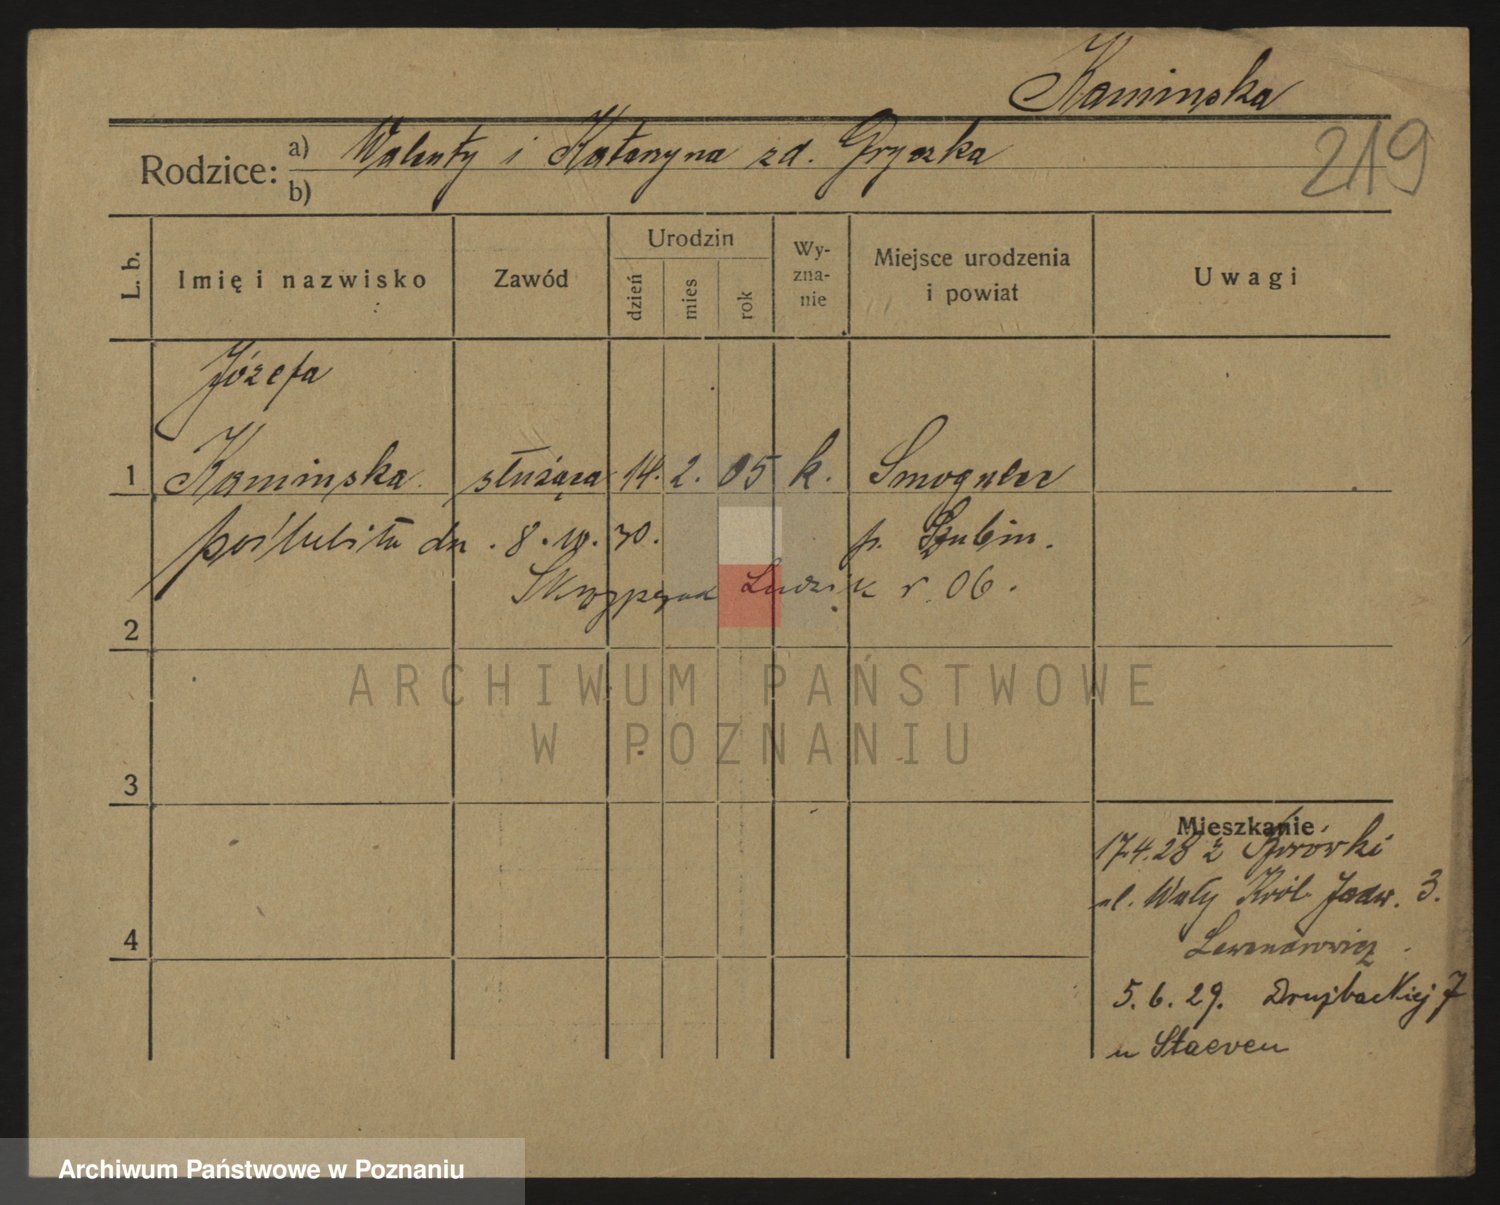 Kamińska
219
Rodzice: a) Walenty i Katarzyna zd. Gryczka
b)
L. b.
Imię i nazwisko
Zawód
Urodzin
dzień
mies
rok
Wy-
zna-
nie
Miejsce urodzenia
i powiat
Uwagi
Józefa
1 Kamińska służąca 14. 2. 05 k. Smogulec
poślubiła dn. 8. 10. 30. p. Szubin.
Skrzypczak r. 06.
2
ARCHIWUM PAŃSTWOWE
W POZNANIU
3
Mieszkanie
17.4.28 z
ul. Wały Król. Jadw. 3.
4
5. 6. 29. Drużbackiej 7
u Staeven
Archiwum Państwowe w Poznaniu